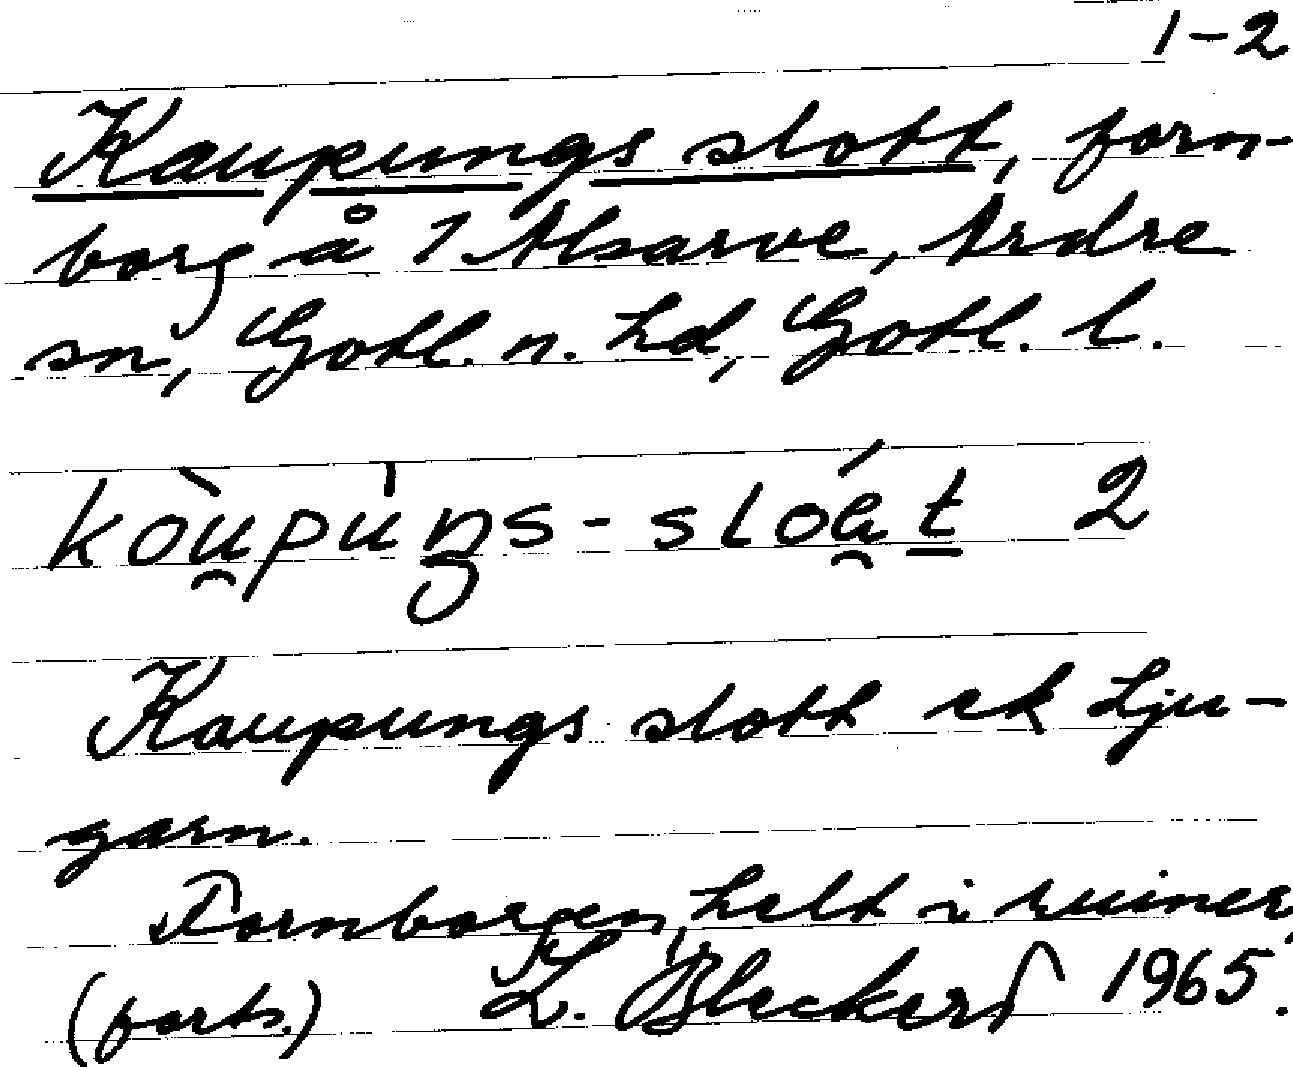 1-2
Kaupungs slott, forn-
borg å 1 Alsarve, Ardre
sn, Gotl. n. hd, Gotl. l.
kòu̯pùŋs-slóa̯t 2
Kaupungs slott ek Lju-
garn.
Fornborgen, helt i ruiner.
(forts.) L. Bleckert 1965.